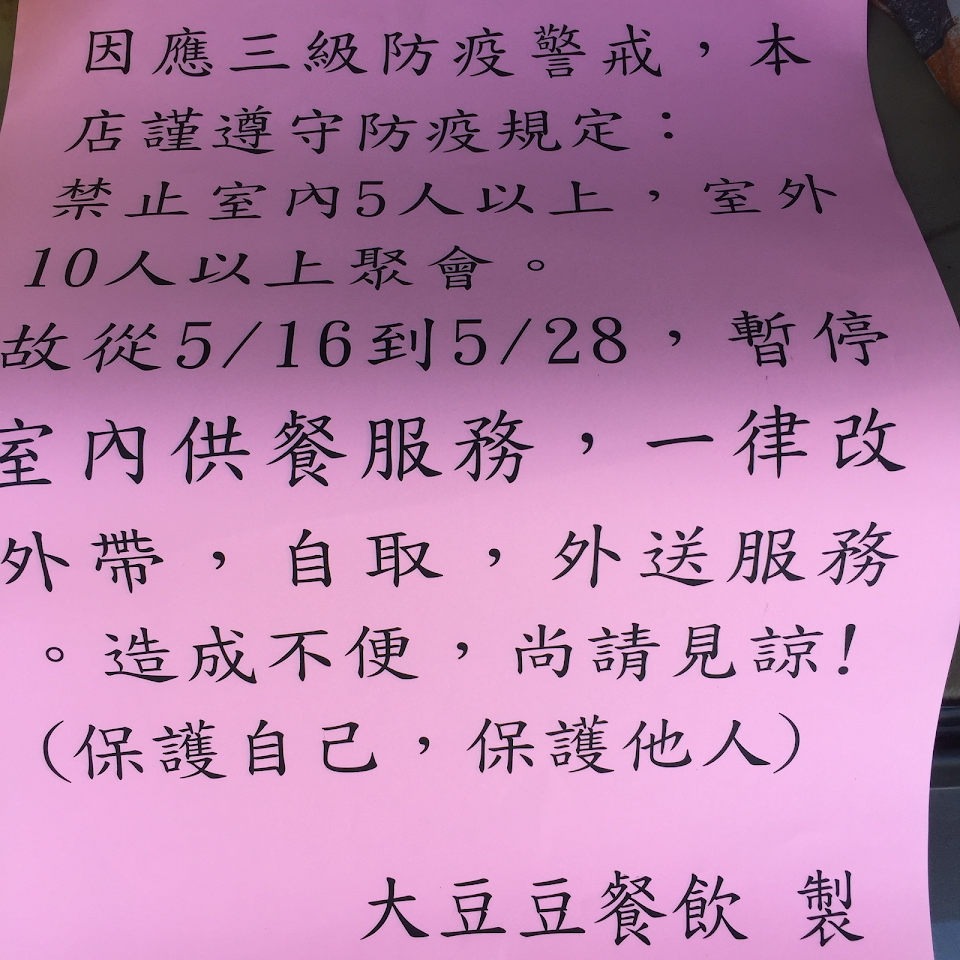 因應三級防疫警戒，本
店謹遵守防疫規定：
禁止室內5人以上，室外
10人以上聚會。
故從5/16到5/28，暫停
室內供餐服務，一律改
外帶，自取，外送服務
。造成不便，尚請見諒!
(保護自己，保護他人)
大豆豆餐飲 製